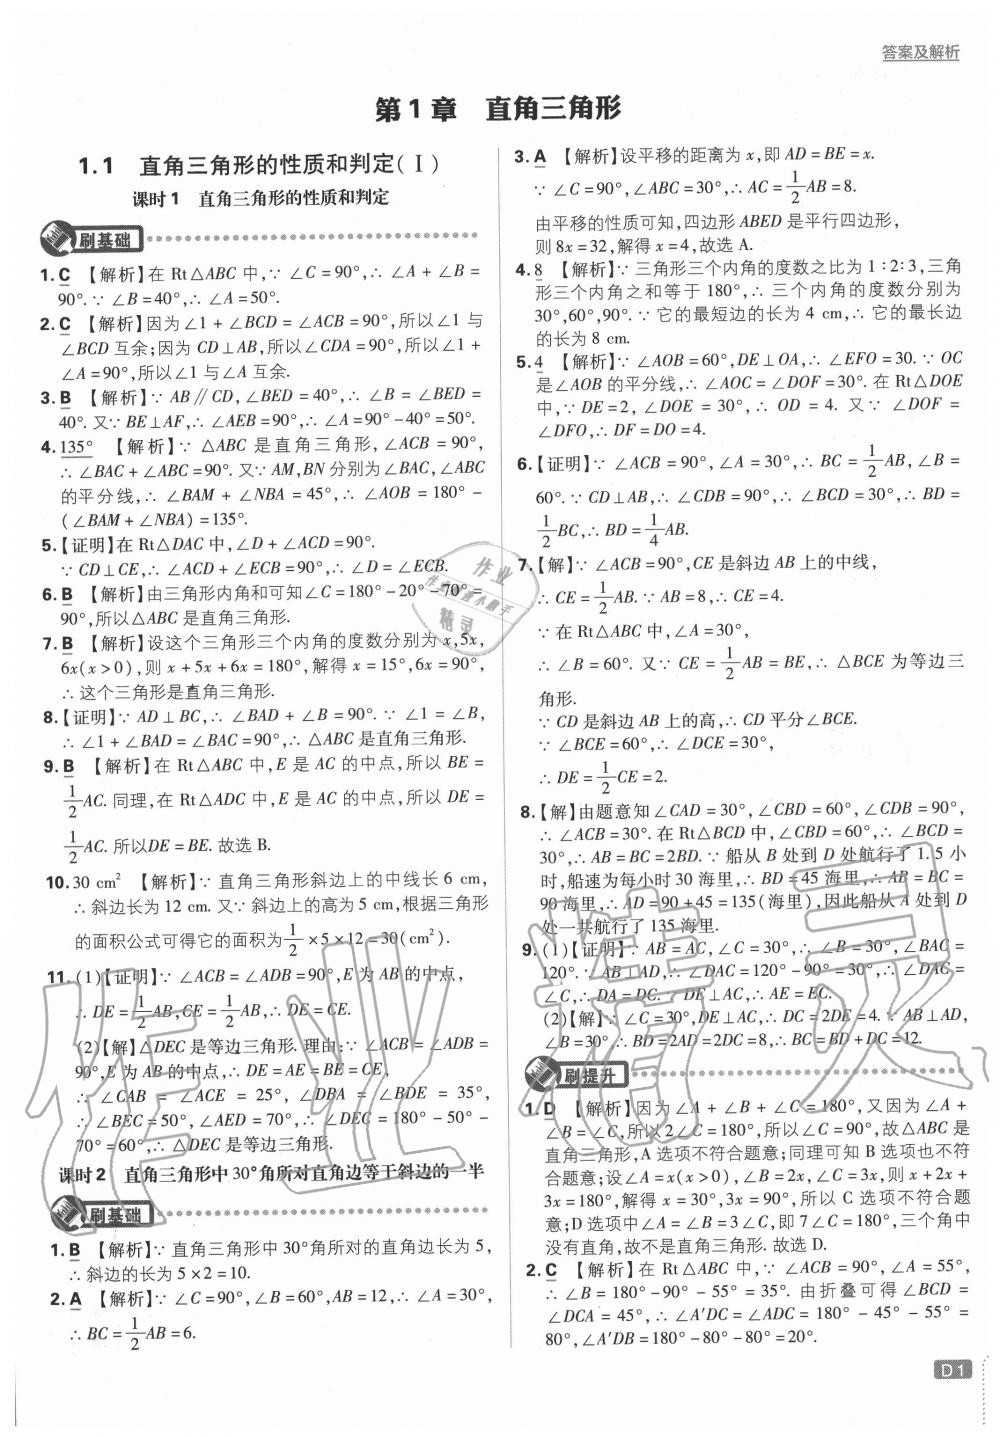 答案及解析
第1章 直角三角形
1.1 直角三角形的性质和判定(Ⅰ)
课时1 直角三角形的性质和判定
刷基础
1. C 【解析】在 Rt△ABC 中,∵ ∠C = 90°,∴ ∠A + ∠B =
90°. ∵ ∠B = 40°,∴ ∠A = 50°.
2. C 【解析】因为∠1 + ∠BCD = ∠ACB = 90°,所以∠1 与
∠BCD 互余;因为 CD⊥AB,所以∠CDA = 90°,所以∠1 +
∠A = 90°,所以∠1 与∠A 互余.
3. B 【解析】∵ AB∥CD,∠BED = 40°,∴ ∠B = ∠BED =
40°. 又∵ BE⊥AF,∴ ∠AEB = 90°,∴ ∠A = 90° - 40° = 50°.
4. 135° 【解析】∵ △ABC 是直角三角形,∠ACB = 90°,
∴ ∠BAC + ∠ABC = 90°. 又∵ AM,BN 分别为∠BAC,∠ABC
的平分线,∴ ∠BAM + ∠NBA = 45°,∴ ∠AOB = 180° -
(∠BAM + ∠NBA) = 135°.
5.【证明】在 Rt△DAC 中,∠D + ∠ACD = 90°.
∵ CD⊥CE,∴ ∠ACD + ∠ECB = 90°,∴ ∠D = ∠ECB.
6. B 【解析】由三角形内角和可知∠C = 180° - 20° - 70° =
90°,所以△ABC 是直角三角形.
7. B 【解析】设这个三角形三个内角的度数分别为 x,5x,
6x(x>0),则 x + 5x + 6x = 180°,解得 x = 15°,6x = 90°,
∴ 这个三角形是直角三角形.
8.【证明】∵ AD⊥BC,∴ ∠BAD + ∠B = 90°. ∵ ∠1 = ∠B,
∴ ∠1 + ∠BAD = ∠BAC = 90°,∴ △ABC 是直角三角形.
9. B 【解析】∵ 在 Rt△ABC 中,E 是 AC 的中点,所以 BE =
1/2 AC. 同理,在 Rt△ADC 中,E 是 AC 的中点,所以 DE =
1/2 AC. 所以DE = BE. 故选 B.
10. 30 cm² 【解析】∵ 直角三角形斜边上的中线长 6 cm,
∴ 斜边长为 12 cm. 又∵ 斜边上的高为 5 cm,根据三角形
的面积公式可得它的面积为 1/2 × 5 × 12 = 30(cm²).
11. (1)【证明】∵ ∠ACB = ∠ADB = 90°,E 为 AB 的中点,
∴ DE = 1/2 AB,CE = 1/2 AB,∴ DE = CE.
(2)【解】△DEC 是等边三角形. 理由:∵ ∠ACB = ∠ADB =
90°,E 为 AB 的中点,∴ DE = AE = BE = CE,
∴ ∠CAB = ∠ACE = 25°,∠DBA = ∠BDE = 35°,
∴ ∠BEC = 50°,∠AED = 70°,∴ ∠DEC = 180° - 50° -
70° = 60°,∴ △DEC 是等边三角形.
课时2 直角三角形中30°角所对直角边等于斜边的一半
刷基础
1. B 【解析】∵ 直角三角形中 30°角所对的直角边长为 5,
∴ 斜边的长为 5 × 2 = 10.
2. A 【解析】∵ ∠C = 90°,∠B = 60°,AB = 12,∴ ∠A = 30°,
∴ BC = 1/2 AB = 6.
3. A 【解析】设平移的距离为 x,即 AD = BE = x.
∵ ∠C = 90°,∠ABC = 30°,∴ AC = 1/2 AB = 8.
由平移的性质可知,四边形 ABED 是平行四边形,
则 8x = 32,解得 x = 4,故选 A.
4. 8 【解析】∵ 三角形三个内角的度数之比为 1∶2∶3,三角
形三个内角之和等于 180°,∴ 三个内角的度数分别为
30°,60°,90°. ∵ 它的最短边的长为 4 cm,∴ 它的最长边
的长为 8 cm.
5. 4 【解析】∵ ∠AOB = 60°,DE⊥OA,∴ ∠EFO = 30. ∵ OC
是∠AOB 的平分线,∴ ∠AOC = ∠DOF = 30°. 在 Rt△DOE
中,∵ DE = 2,∠DOE = 30°,∴ OD = 4. 又∵ ∠DOF =
∠DFO,∴ DF = DO = 4.
6.【证明】∵ ∠ACB = 90°,∠A = 30°,∴ BC = 1/2 AB,∠B =
60°. ∵ CD⊥AB,∴ ∠CDB = 90°,∴ ∠BCD = 30°,∴ BD =
1/2 BC,∴ BD = 1/4 AB.
7.【解】∵ ∠ACB = 90°,CE 是斜边 AB 上的中线,
∴ CE = 1/2 AB. ∵ AB = 8,∴ CE = 4.
∵ 在 Rt△ABC 中,∠A = 30°,
∴ ∠B = 60°. 又∵ CE = 1/2 AB = BE,∴ △BCE 为等边三
角形.
∵ CD 是斜边 AB 上的高,∴ CD 平分∠BCE.
∵ ∠BCE = 60°,∴ ∠DCE = 30°,
∴ DE = 1/2 CE = 2.
8.【解】由题意知∠CAD = 30°,∠CBD = 60°,∠CDB = 90°,
∴ ∠ACB = 30°. 在 Rt△BCD 中,∠CBD = 60°,∴ ∠BCD =
30°,∴ AB = BC = 2BD. ∵ 船从 B 处到 D 处航行了 1.5 小
时,船速为每小时 30 海里,∴ BD = 45 海里,∴ AB = BC =
90 海里,∴ AD = 90 + 45 = 135(海里),因此船从 A 处到 D
处一共航行了 135 海里.
9. (1)【证明】∵ AB = AC,∠C = 30°,∴ ∠B = 30°,∠BAC =
120°. ∵ AB⊥AD,∴ ∠DAC = 120° - 90° = 30°,∴ ∠DAC =
∠C,∴ DA = DC. ∵ DE⊥AC,∴ AE = EC.
(2)【解】∵ ∠C = 30°,DE⊥AC,∴ DC = 2DE = 4. ∵ AB⊥AD,
∠B = 30°,∴ BD = 2AD = 2DC = 8,∴ BC = BD + DC = 12.
刷提升
1. D 【解析】因为∠A + ∠B + ∠C = 180°,又因为∠A +
∠B = ∠C,所以 2∠C = 180°,所以∠C = 90°,故△ABC 是
直角三角形,A 选项不符合题意;同理可知 B 选项也不符
合题意;设∠A = x(x>0),∠B = 2x,∠C = 3x,则 x + 2x +
3x = 180°,解得 x = 30°,3x = 90°,所以 C 选项不符合题
意;D 选项中∠A = ∠B = 3∠C,即 7∠C = 180°,三个角中
没有直角,故不是直角三角形. 故选 D.
2. C 【解析】在 Rt△ABC 中,∵ ∠ACB = 90°,∠A = 55°,
∴ ∠B = 180° - 90° - 55° = 35°. 由折叠可得∠BCD =
∠DCA = 45°,∴ ∠A′DC = ∠ADC = 180° - 45° - 55° =
80°,∠A′DB = 180° - 80° - 80° = 20°.
D1
作业
作业精灵小助手
精灵
作业精灵